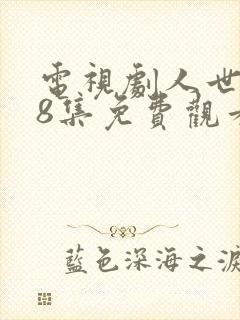 電視劇人世
8集免費觀看
藍色深海之淚